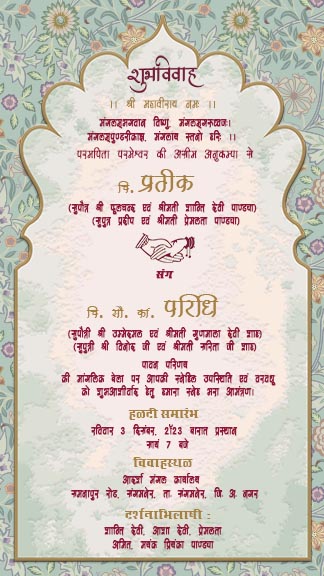 शुभविवाह
।। श्री महावीराय नमः ।।
मंगलम् भगवान विष्णु, मंगलम् गरुडध्वजः।
मंगलम् पुण्डरीकाक्ष, मंगलाय तनो हरिः ।।
परमपिता परमेश्वर की असीम अनुकम्पा से
चि. प्रतीक
(सुपौत्र श्री फूलचन्द एवं श्रीमती शान्ति देवी पाण्डया)
(सुपुत्र प्रदीप एवं श्रीमती प्रेमलता पाण्डया)
संग
चि. सौ. कां. परिधि
(सुपौत्री श्री उम्मेदमल एवं श्रीमती गुणमाला देवी शाह)
(सुपुत्री श्री विनोद जी एवं श्रीमती सरिता जी शाह)
पावन परिणय
की मांगलिक बेला पर आपकी स्नेहिल उपस्थिति एवं वरवधु
को शुभआशीर्वाद हेतु हमारा स्नेह भरा आमंत्रण।
हळदी समारंभ
रविवार 3 दिसंबर, 2023 बारात प्रस्थान
सायं 7 बजे
विवाहस्थळ
आदर्श मंगल कार्यालय
रोड, संगमनेर, ता. संगमनेर, जि. अ. नगर
दर्शनाभिलाषी :
शान्ति देवी, आशा देवी, प्रेमलता
अमित, मयंक प्रियंका पाण्डया